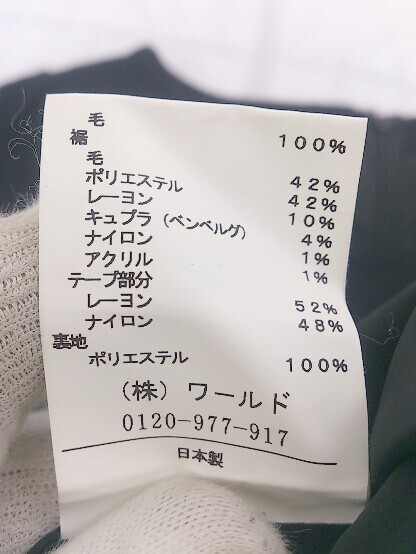 毛 100%
裾
毛 42%
ポリエステル 42%
レーヨン 10%
キュプラ (ベンベルグ) 4%
ナイロン 1%
アクリル 1%
テープ部分
レーヨン 52%
ナイロン 48%
裏地
ポリエステル 100%
(株) ワールド
0120-977-917
日本製